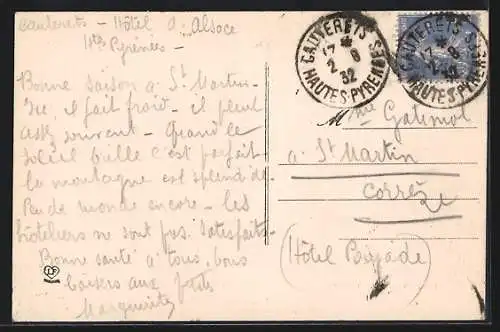 Cauterets - Hôtel d'Alsace
Htes Pyrénées -
Bonne saison à St Martin -
Ici, il fait froid - il pleut
assez souvent - Quand le
soleil brille c'est parfait
la montagne est splendide.
Peu de monde encore - les
hôteliers ne sont pas satisfaits -
Bonne santé à tous, bons
baisers aux petits
Marguerite
CAUTERETS
17 *
2 - 8
32
HAUTES-PYRENEES
CAUTERETS
17 *
2 - 8
32
HAUTES-PYRENEES
Mme Galimol
à St Martin
Corrèze
(Hôtel)